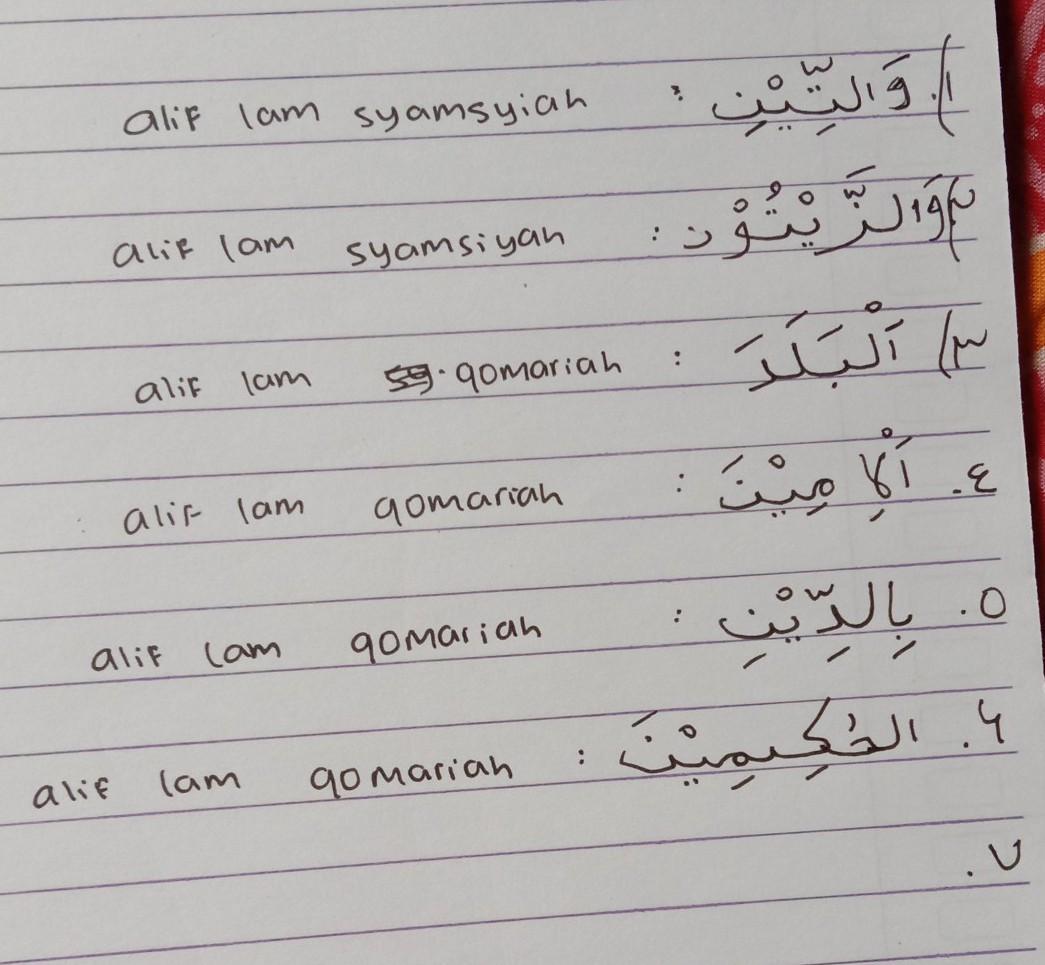 ١) وَالتِّيْنِ : alif lam syamsyiah
٢) وَالزَّيْتُوْنِ : alif lam syamsiyah
٣) اَلْبَلَدَ : alif lam qomariah
٤. اَلْاِ مِيْنَ : alif lam qomariah
٥. بِالدِّيْنِ : alif lam qomariah
٦. الحٰكِمِيْنَ : alif lam qomariah
٧.